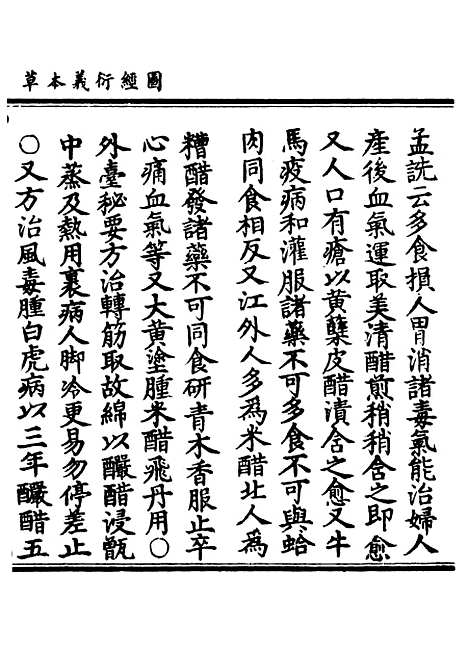 圖經衍義本草
孟詵云多食損人胃消諸毒氣能治婦人
產後血氣運取美清醋煎稍稍含之即愈
又人口有瘡以黃蘗皮醋漬含之愈又牛
馬疫病和灌服諸藥不可多食不可與蛤
肉同食相反又江外人多為米醋北人為
糟醋發諸藥不可同食研青木香服止卒
心痛血氣等又大黃塗腫米醋飛丹用〇
外臺秘要方治轉筋取故綿以釅醋浸甑
中蒸及熱用裹病人脚冷更易勿停差止
〇又方治風毒腫白虎病以三年釅醋五